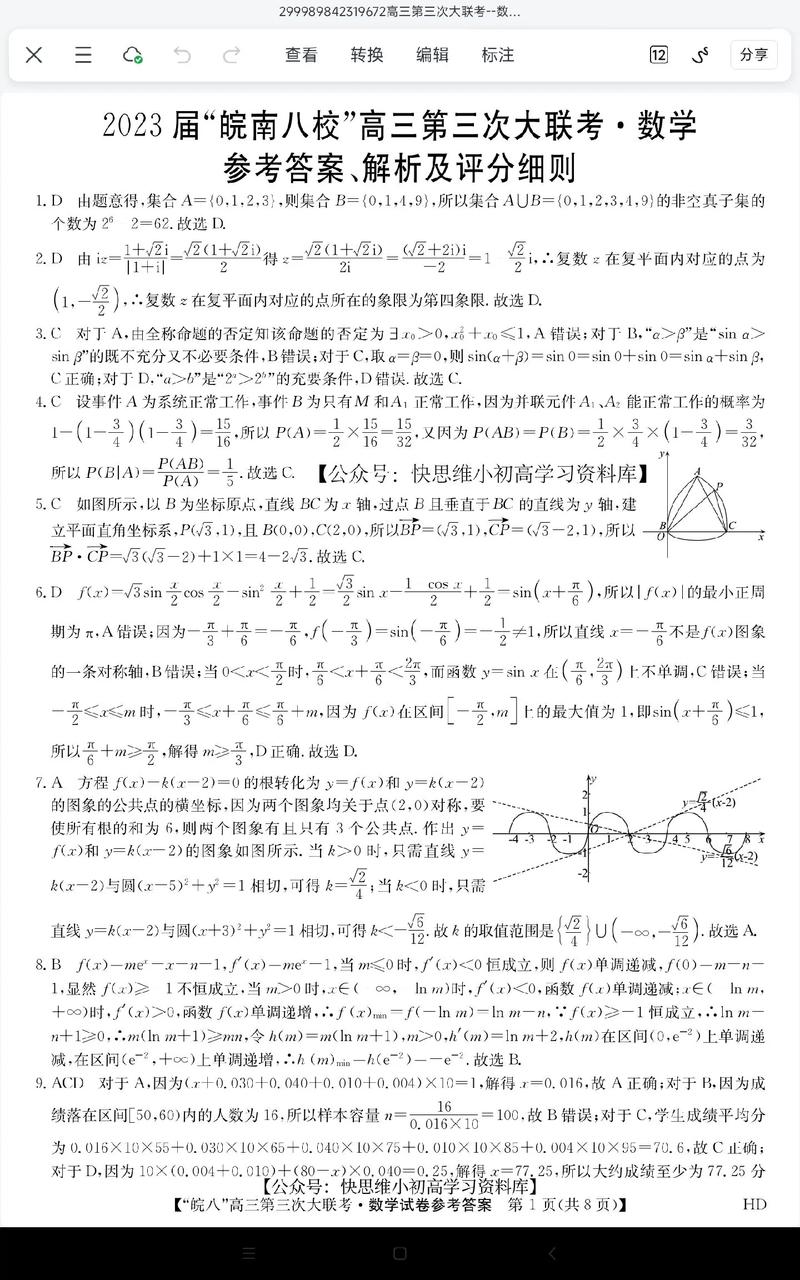 299989842319672高三第三次大联考--数...
查看 转换 编辑 标注 12 分享
2023 届“皖南八校”高三第三次大联考·数学
参考答案、解析及评分细则
1. D 由题意得,集合 A={0,1,2,3},则集合 B={0,1,4,9},所以集合 A∪B={0,1,2,3,4,9}的非空真子集的
个数为 2⁶ 2=62. 故选 D.
2. D 由 iz=(1+√2i)/|1+i|=√2(1+√2i)/2得 z=√2(1+√2i)/2i=(√2+2i)i/-2=1 √2/2 i,∴复数 z 在复平面内对应的点为
(1,-√2/2),∴复数 z 在复平面内对应的点所在的象限为第四象限. 故选 D.
3. C 对于 A,由全称命题的否定知该命题的否定为 ∃x₀>0,x₀²+x₀≤1,A 错误;对于 B,“α>β”是“sin α>
sin β”的既不充分又不必要条件,B 错误;对于 C,取 α=β=0,则 sin(α+β)=sin 0=sin 0+sin 0=sin α+sin β,
C 正确;对于 D,“a>b”是“2ᵃ>2ᵇ”的充要条件,D 错误. 故选 C.
4. C 设事件 A 为系统正常工作,事件 B 为只有 M 和 A₁ 正常工作,因为并联元件 A₁、A₂ 能正常工作的概率为
1-(1-3/4)(1-3/4)=15/16,所以 P(A)=1/2×15/16=15/32,又因为 P(AB)=P(B)=1/2×3/4×(1-3/4)=3/32,
所以 P(B|A)=P(AB)/P(A)=1/5. 故选 C. 【公众号：快思维小初高学习资料库】
5. C 如图所示,以 B 为坐标原点,直线 BC 为 x 轴,过点 B 且垂直于 BC 的直线为 y 轴,建
立平面直角坐标系,P(√3,1),且 B(0,0),C(2,0),所以BP=(√3,1),CP=(√3-2,1),所以
BP·CP=√3(√3-2)+1×1=4-2√3. 故选 C.
y A P B O C x
6. D f(x)=√3sin x/2 cos x/2-sin² x/2+1/2=√3/2 sin x-(1 cos x)/2+1/2=sin(x+π/6),所以|f(x)|的最小正周
期为 π,A 错误;因为-π/3+π/6=-π/6,f(-π/3)=sin(-π/6)=-1/2≠1,所以直线 x=-π/6不是 f(x)图象
的一条对称轴,B 错误;当 0<x<π/2时,π/6<x+π/6<2π/3,而函数 y=sin x 在(π/6,2π/3)上不单调,C 错误;当
-π/2≤x≤m 时,-π/3≤x+π/6≤π/6+m,因为 f(x)在区间[-π/2,m]上的最大值为 1,即sin(x+π/6)≤1,
所以π/6+m≥π/2,解得 m≥π/3,D 正确. 故选 D.
7. A 方程 f(x)-k(x-2)=0 的根转化为 y=f(x)和 y=k(x-2)
的图象的公共点的横坐标,因为两个图象均关于点(2,0)对称,要
使所有根的和为 6,则两个图象有且只有 3 个公共点. 作出 y=
f(x)和 y=k(x-2)的图象如图所示. 当 k>0 时,只需直线 y=
k(x-2)与圆(x-5)²+y²=1 相切,可得 k=√2/4;当 k<0 时,只需
y 2 y=√2/4(x-2)
-4 -3 -2 -1 O 1 2 3 4 5 6 7 8 x
-1 y=-√6/12(x-2)
-2
直线 y=k(x-2)与圆(x+3)²+y²=1 相切,可得 k<-√6/12. 故 k 的取值范围是{√2/4}∪(-∞,-√6/12). 故选 A.
8. B f(x)=meˣ-x-n-1,f′(x)=meˣ-1,当 m≤0 时,f′(x)<0 恒成立,则 f(x)单调递减,f(0)=m-n-
1,显然 f(x)≥ 1 不恒成立,当 m>0 时,x∈( ∞, ln m)时,f′(x)<0,函数 f(x)单调递减;x∈( ln m,
+∞)时,f′(x)>0,函数 f(x)单调递增,∴f(x)min=f(-ln m)=ln m-n,∵f(x)≥-1 恒成立,∴ln m-
n+1≥0,∴m(ln m+1)≥mn,令 h(m)=m(ln m+1),m>0,h′(m)=ln m+2,h(m)在区间(0,e⁻²)上单调递
减,在区间(e⁻²,+∞)上单调递增,∴h(m)min=h(e⁻²)=-e⁻². 故选 B.
9. ACD 对于 A,因为(x+0.030+0.040+0.010+0.004)×10=1,解得 x=0.016,故 A 正确;对于 B,因为成
绩落在区间[50,60)内的人数为 16,所以样本容量 n=16/(0.016×10)=100,故 B 错误;对于 C,学生成绩平均分
为 0.016×10×55+0.030×10×65+0.040×10×75+0.010×10×85+0.004×10×95=70.6,故 C 正确;
对于 D,因为 10×(0.004+0.010)+(80-x)×0.040=0.25,解得 x=77.25,所以大约成绩至少为 77.25 分
【公众号：快思维小初高学习资料库】
【“皖八”高三第三次大联考·数学试卷参考答案 第 1 页(共 8 页)】 HD